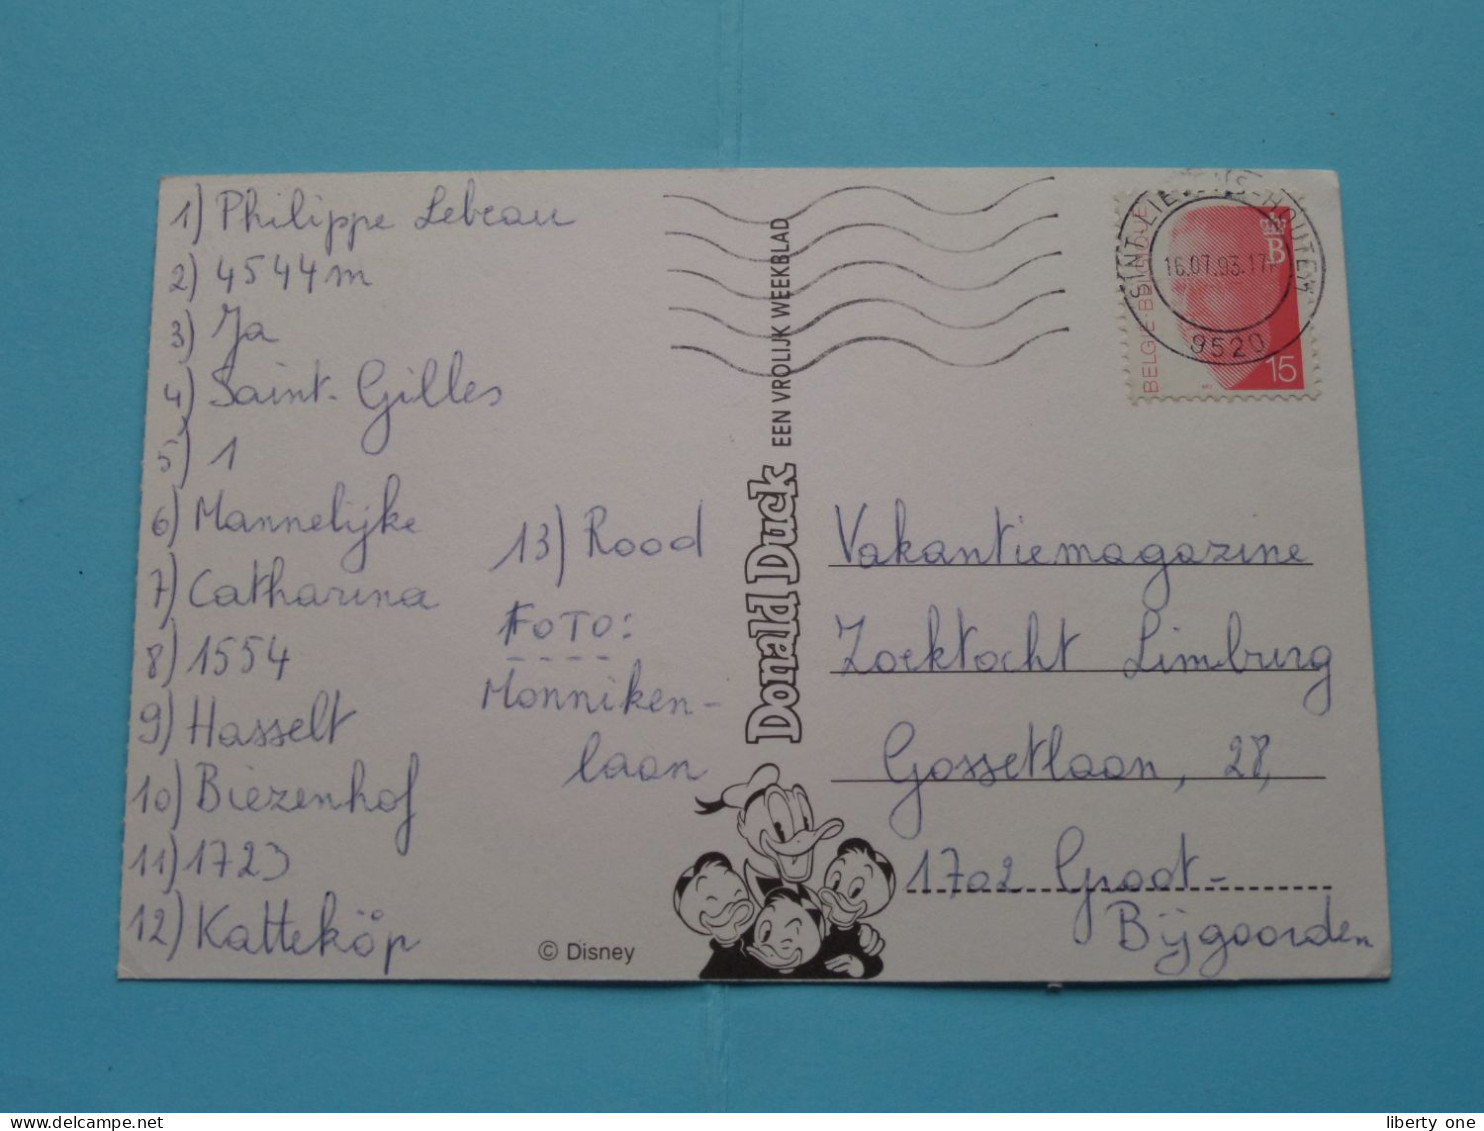 1) Philippe Lebeau
2) 4544m
3) Ja
4) Saint-Gilles
5) 1
6) Mannelijke
7) Catharina
8) 1554
9) Hasselt
10) Biezenhof
11) 1723
12) Katteköp
13) Rood
FOTO:
Monniken-
laan
© Disney
Donald Duck EEN VROLIJK WEEKBLAD
16.07.93.17
9520
BELGIE BELGIQUE
B
15
Vakantiemagazine
Zoektocht Limburg
Gossetlaan, 28,
1702 Groot-
Bijgaarden
liberty one